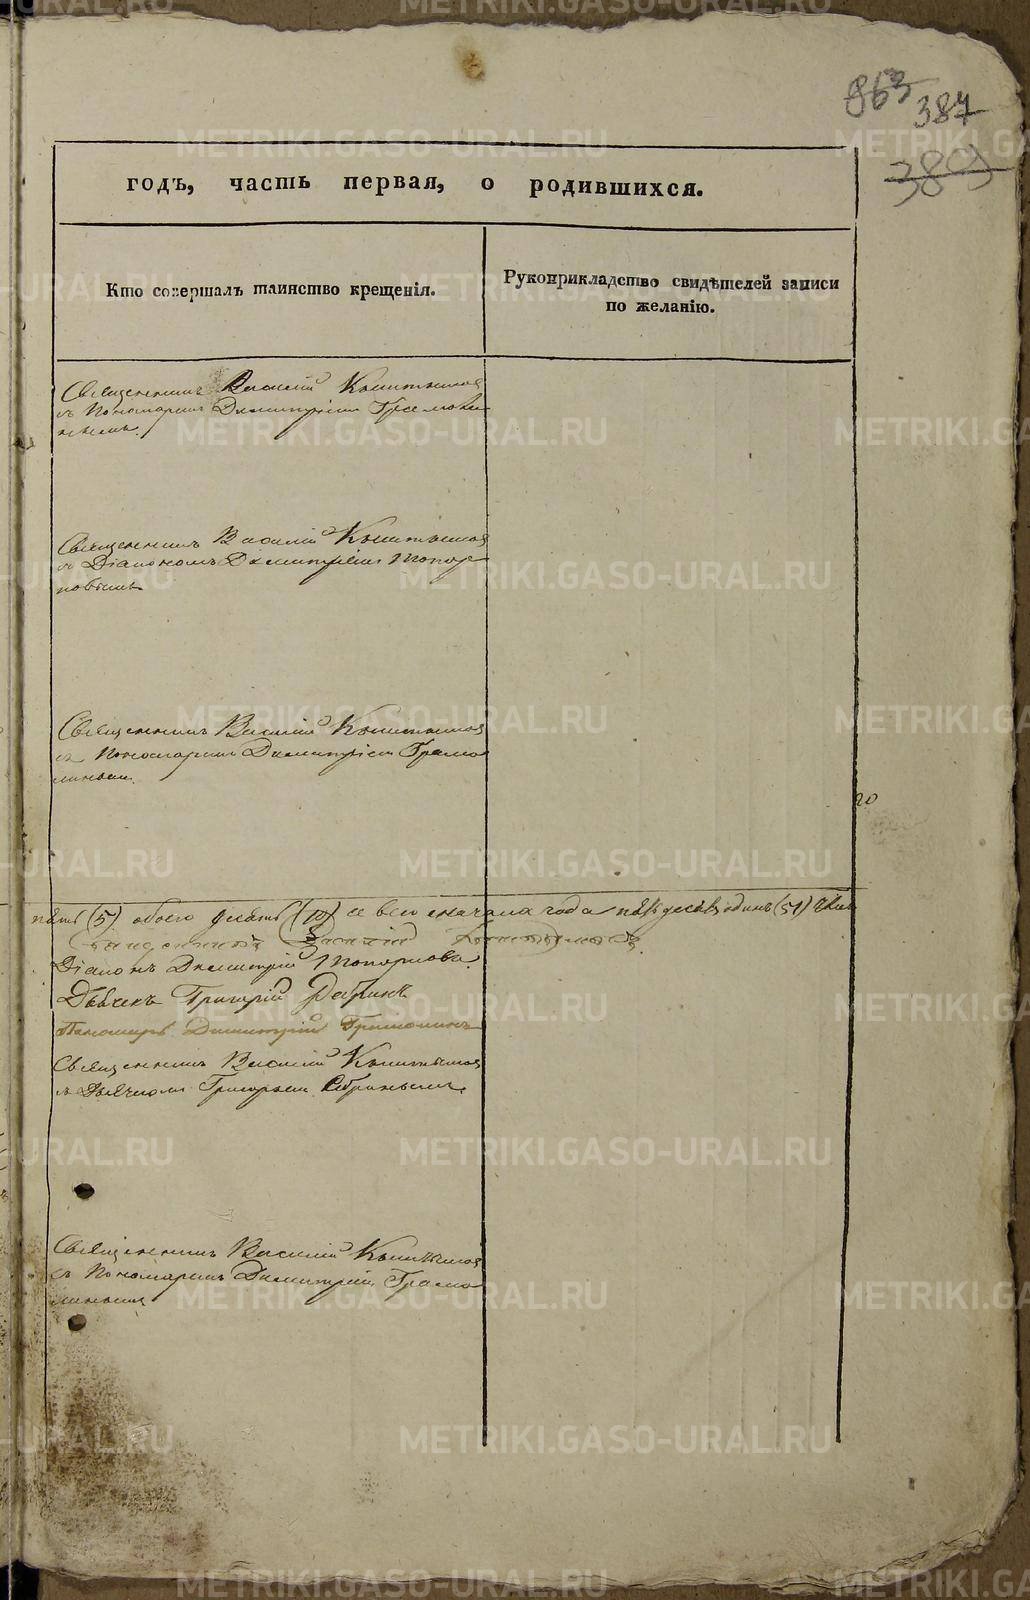 863
387
389
годъ, часть первая, о родившихся.
Кто совершалъ таинство крещенія.
Рукоприкладство свидѣтелей записи
по желанію.
Священникъ Василій
съ Пономаремъ Димитріемъ
Священникъ Василій
съ Діакономъ Димитріемъ Топор
ковымъ
Священникъ Василій
съ Пономаремъ Димитріемъ Грамо
линымъ
20
пять (5) обоего десять (10) а всего сначала года пятьдесятъ одинъ (51)
Священникъ Василій
Діаконъ Димитрій Топорковъ
Дьячекъ Григорій
Пономарь Димитрій Грамолинъ
Священникъ Василій
съ Дьячкомъ Григорьемъ
Священникъ Василій
съ Пономаремъ Димитріемъ Грамо
линымъ
METRIKI.GASO-URAL.RU